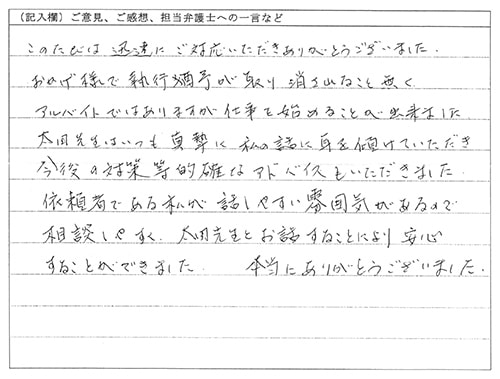 （記入欄）ご意見、ご感想、担当弁護士への一言など
このたびは 迅速に ご対応いただきありがとうございました.
おかげ様で 執行猶予が取り消されること無く
アルバイトではありますが仕事を始めることが出来ました
太田先生はいつも 真摯に 私の話に耳を傾けていただき
今後の対策等的確なアドバイスもいただきました.
依頼者である私が 話しやすい雰囲気があるので
相談しやすく、太田先生とお話することにより 安心
することができました. 本当にありがとうございました.